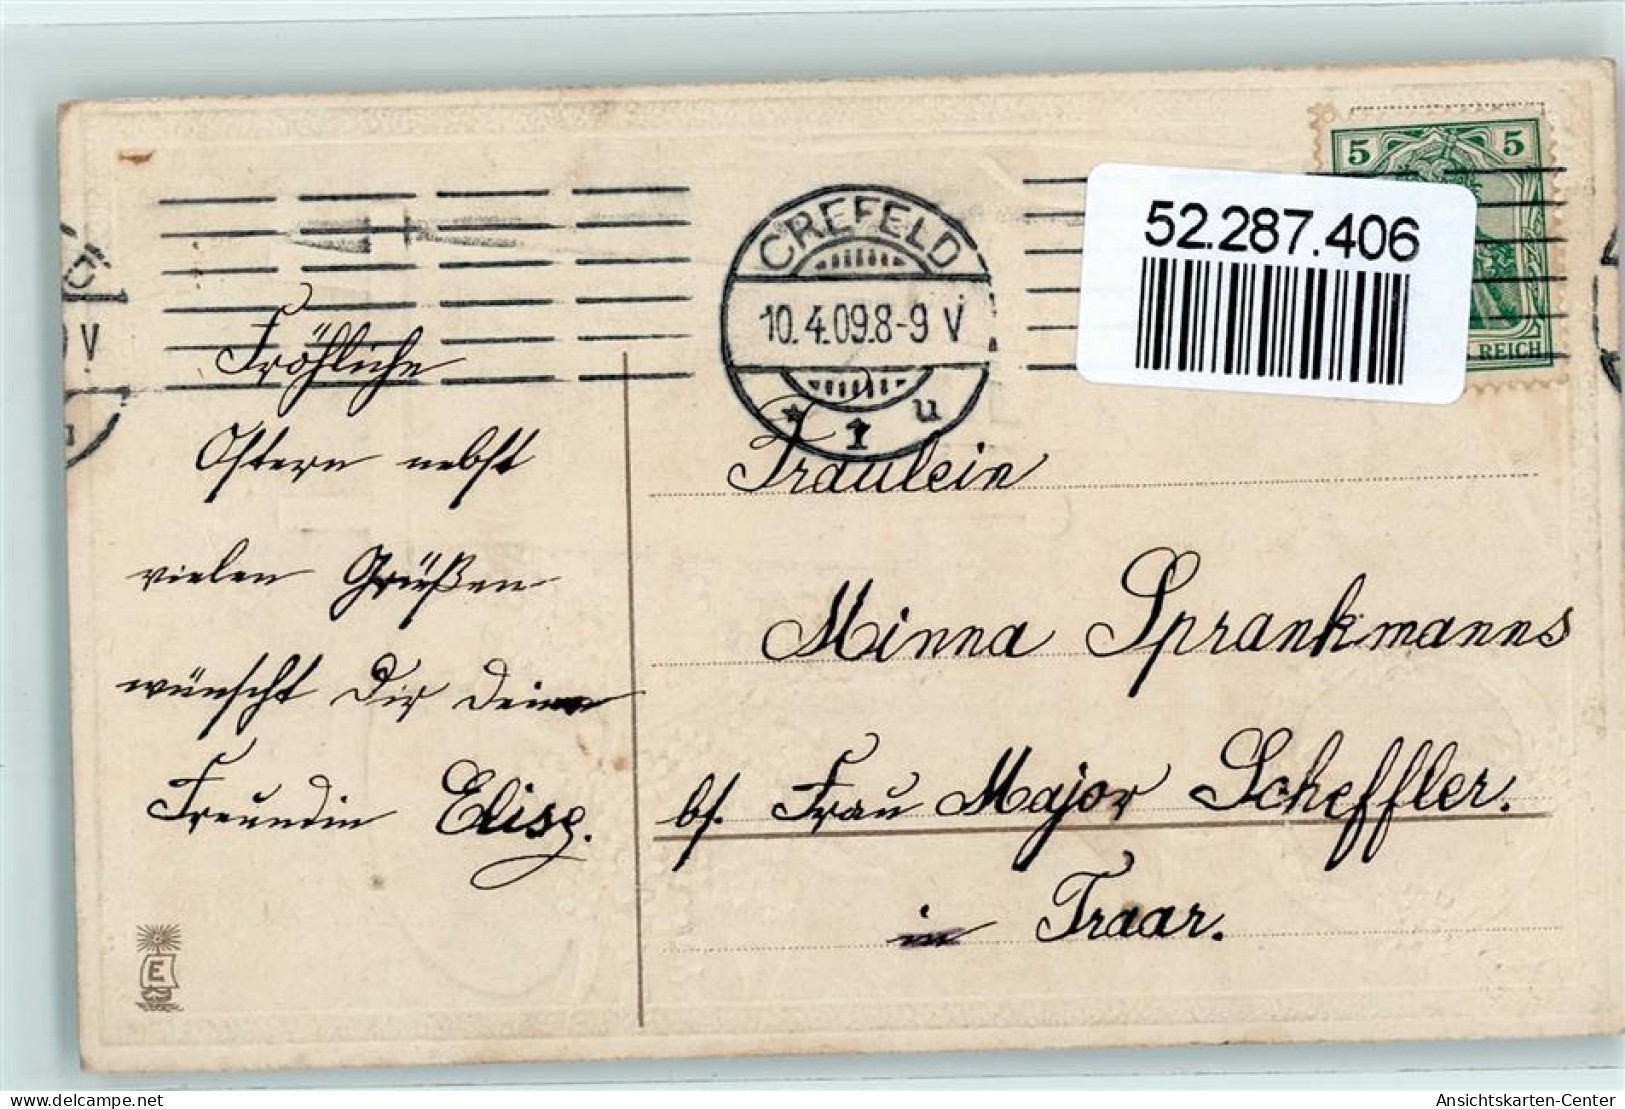 5 5
52.287.406
REICH
CREFELD
10.4.09.8-9 V
* 1 u
V
Fröhliche
Ostern nebst
vielen Grüßen
wünscht Dir Deine
Freundin Elise.
Fräulein
Minna Sprankmanns
bf. Frau Major Scheffler.
in Traar.
E
Ansichtskarten-Center